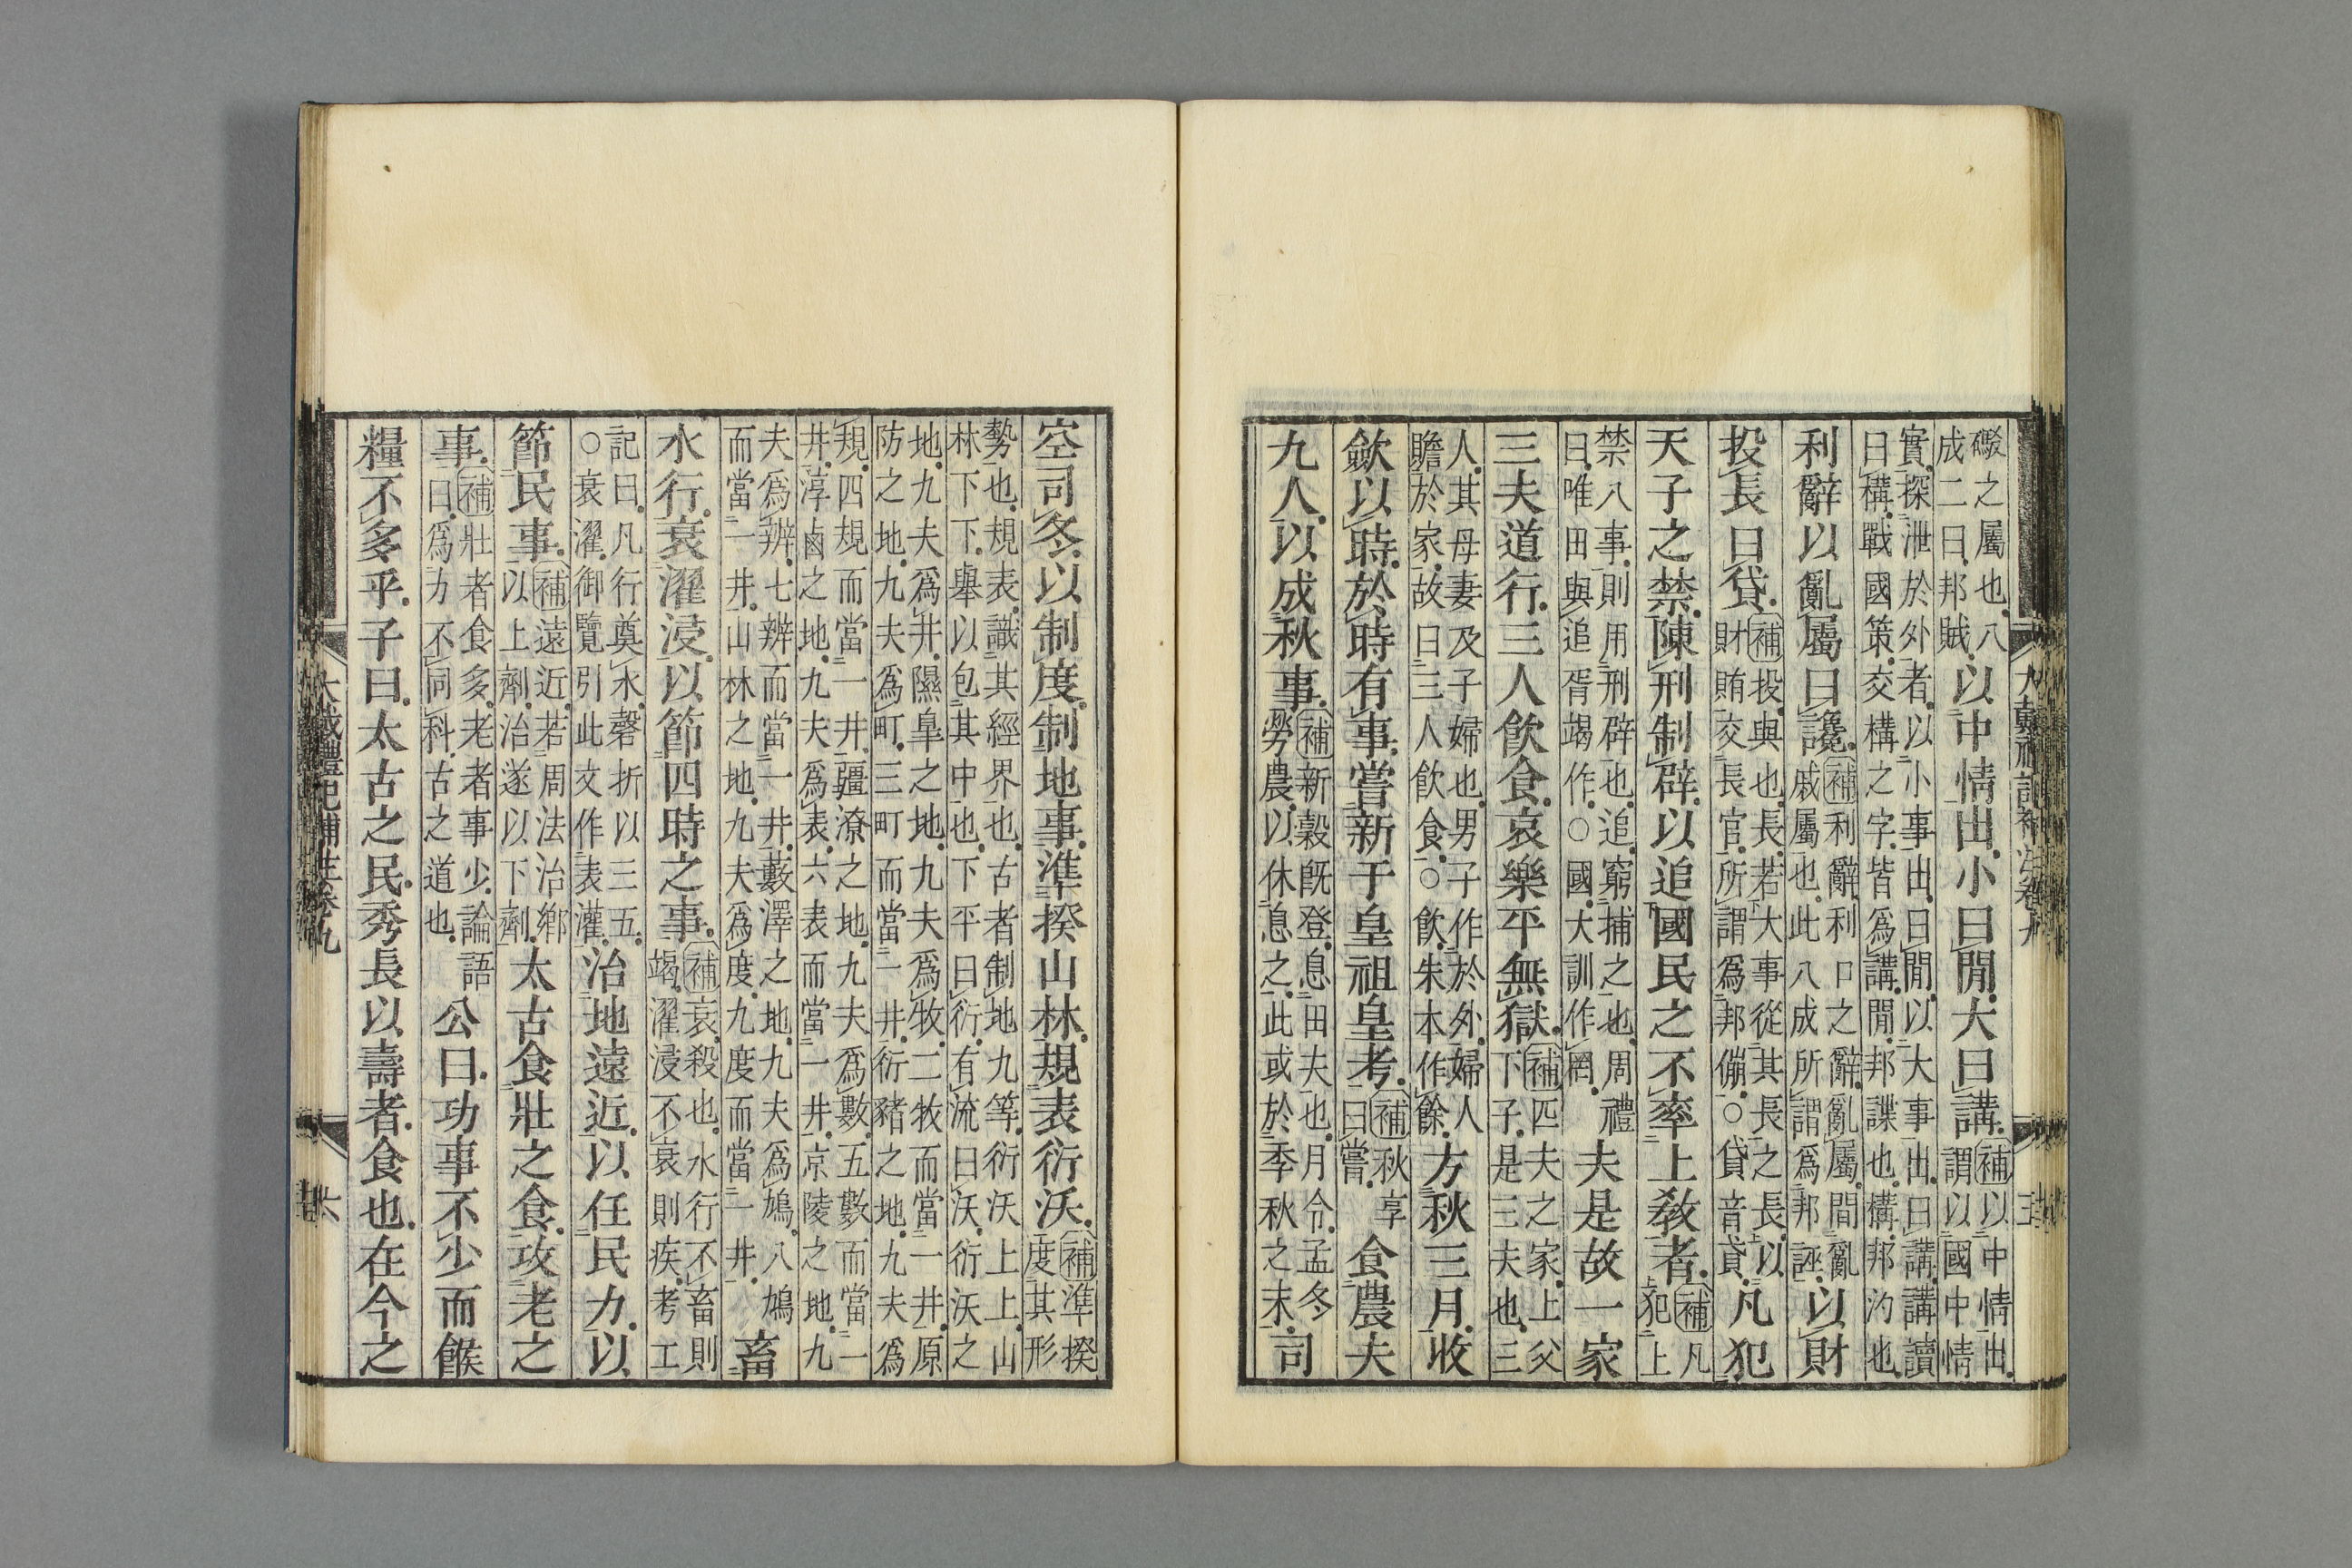 大戴禮記補注卷九 三
礮之屬也八成二曰邦賊以中情出小曰閒大曰講補以中情出謂以國中情
實探泄於外者以小事出曰閒以大事出曰講講讀曰構戰國策交構之字皆爲講閒邦諜也構邦汋也
利辭以亂屬曰讒補利辭利口之辭亂屬間亂戚屬也此八成所謂爲邦誣以財
投長曰貸補投與也長若大事從其長之長以財賄交長官所謂爲邦傰○貸音貣凡犯
天子之禁陳刑制辟以追國民之不率上教者補凡犯上
禁八事則用刑辟也追窮捕之也周禮曰唯田與追胥竭作○國大訓作罔夫是故一家
三夫道行三人飲食哀樂平無獄補匹夫之家上父下子是三夫也三
人其母妻及子婦也男子作於外婦人贍於家故曰三人飲食○飲朱本作餘方秋三月收
歛以時於時有事嘗新于皇祖皇考補秋享曰嘗食農夫
九人以成秋事補新穀既登息田夫也月令孟冬勞農以休息之此或於季秋之末司
空司冬以制度制地事準揆山林規表衍沃補準揆度其形
勢也規表識其經界也古者制地九等衍沃上上山林下下舉以包其中也下平曰衍有流曰沃衍沃之
地九夫爲井隰皐之地九夫爲牧二牧而當一井原防之地九夫爲町三町而當一井衍豬之地九夫爲
規四規而當一井疆潦之地九夫爲數五數而當一井淳鹵之地九夫爲表六表而當一井京陵之地九
夫爲辨七辨而當一井藪澤之地九夫爲鳩八鳩而當一井山林之地九夫爲度九度而當一井畜
水行衰濯浸以節四時之事補衰殺也水行不畜則竭濯浸不衰則疾考工
記曰凡行奠水磬折以三五○衰濯御覽引此文作表灌治地遠近以任民力以
節民事補遠近若周法治鄉以上劑治遂以下劑太古食壯之食攻老之
事補壯者食多老者事少論語曰爲力不同科古之道也公曰功事不少而餱
糧不多乎子曰太古之民秀長以壽者食也在今之
大戴禮記補注卷九 六